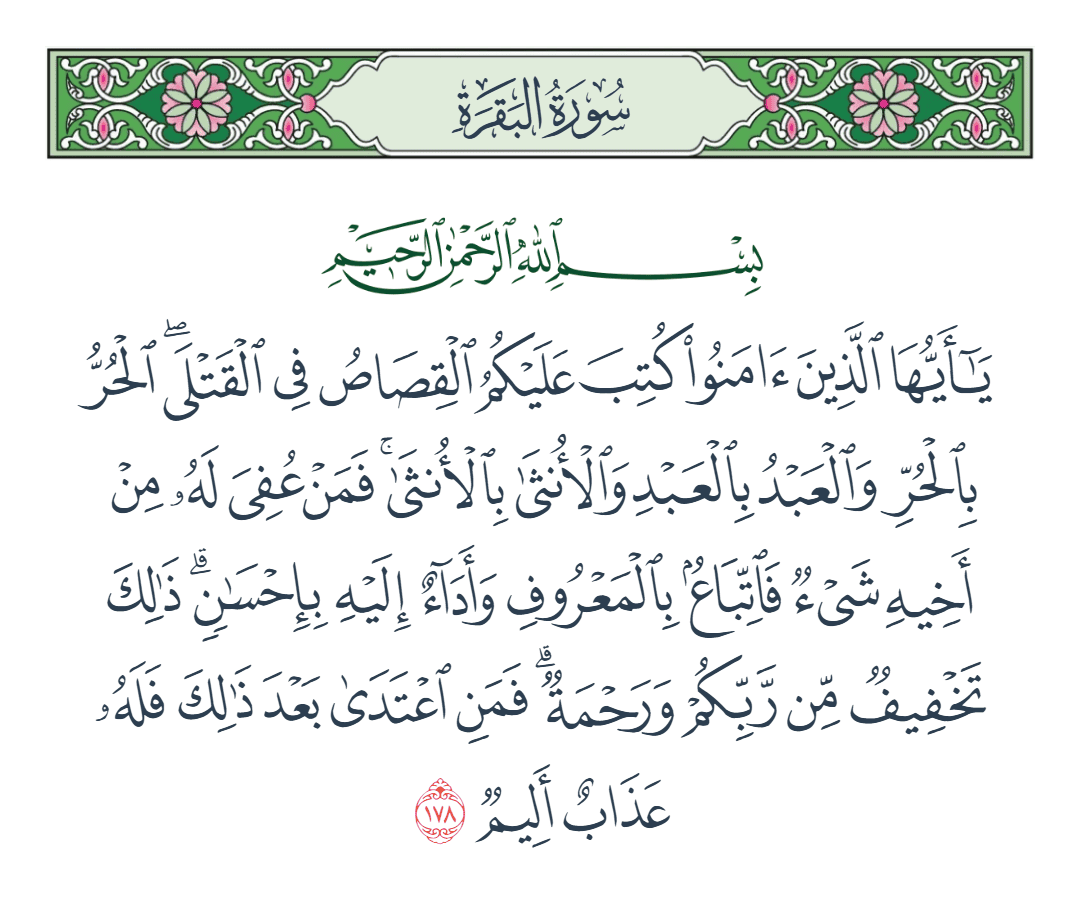 سُورَةُ البَقَرَةِ
بِسْمِ ٱللَّهِ ٱلرَّحْمَٰنِ ٱلرَّحِيمِ
يَـٰٓأَيُّهَا ٱلَّذِينَ ءَامَنُوا۟ كُتِبَ عَلَيْكُمُ ٱلْقِصَاصُ فِى ٱلْقَتْلَى ۖ ٱلْحُرُّ
بِٱلْحُرِّ وَٱلْعَبْدُ بِٱلْعَبْدِ وَٱلْأُنثَىٰ بِٱلْأُنثَىٰ ۚ فَمَنْ عُفِىَ لَهُۥ مِنْ
أَخِيهِ شَىْءٌ فَٱتِّبَاعٌۢ بِٱلْمَعْرُوفِ وَأَدَآءٌ إِلَيْهِ بِإِحْسَـٰنٍ ۗ ذَٰلِكَ
تَخْفِيفٌ مِّن رَّبِّكُمْ وَرَحْمَةٌ ۗ فَمَنِ ٱعْتَدَىٰ بَعْدَ ذَٰلِكَ فَلَهُۥ
عَذَابٌ أَلِيمٌ ١٧٨